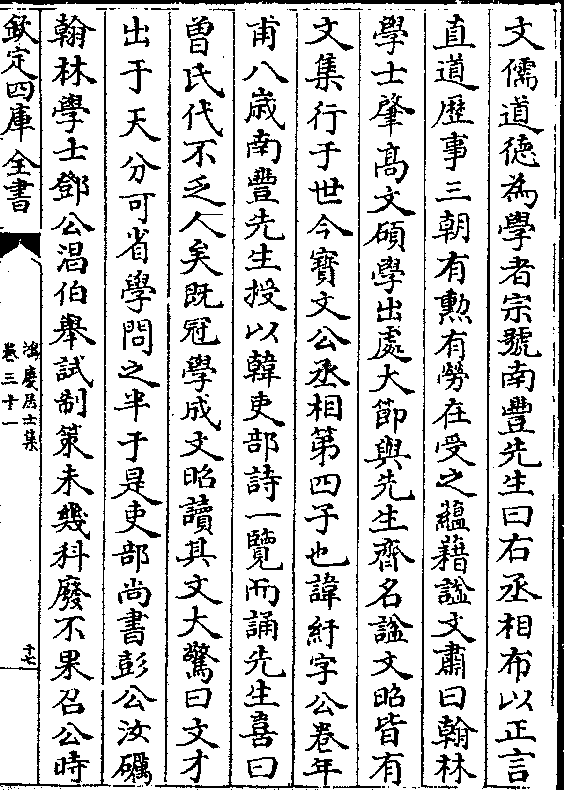 文儒道徳為學者宗號南豐先生曰右丞相布以正言
直道歴事三朝有勲有勞在受之藴藉諡文肅曰翰林
學士肇髙文碩學出處大節與先生齊名諡文昭皆有
文集行于世今寶文公丞相第四子也諱紆字公卷年
甫八歳南豐先生授以韓吏部詩一覽而誦先生喜曰
曽氏代不乏人矣既冠學成文昭讀其文大驚曰文才
出于天分可省學問之半于是吏部尚書彭公汝礪
翰林學士鄧公温伯舉試制策未幾科廢不果召公時
欽定四庫全書
鴻慶居士集
卷三十一
十七